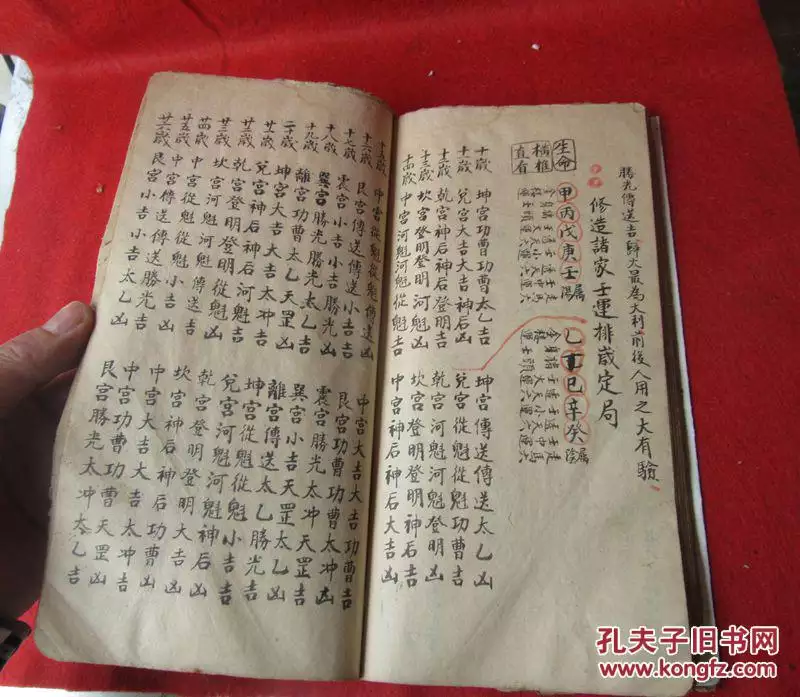 勝光傳送吉歸大最為大利前後人用之大有驗
修造諸家壬運排歲定局
生命 甲丙戊庚壬屬陽 乙丁巳辛癸屬陰
橫推
直有
十歲 坤宮功曹功曹太乙吉 坤宮傳送傳送太乙凶
十一歲 兌宮大吉大吉神后凶 兌宮從魁從魁功曹吉
十二歲 乾宮神后神后登明吉 乾宮河魁河魁登明凶
十三歲 坎宮登明登明河魁凶 坎宮登明登明神后吉
十四歲 中宮河魁河魁從魁吉 中宮神后神后大吉凶
十五歲 中宮從魁從魁傳送凶 中宮大吉大吉功曹吉
十六歲 艮宮傳送傳送小吉吉 艮宮功曹功曹太冲凶
十七歲 震宮小吉小吉勝光凶 震宮勝光太冲天罡吉
十八歲 巽宮勝光勝光太乙吉 巽宮小吉天罡太乙凶
十九歲 離宮功曹太乙天罡凶 離宮傳送太乙勝光吉
二十歲 坤宮大吉大吉太冲吉 坤宮從魁從魁小吉凶
廿一歲 兌宮神后神后凶 兌宮河魁河魁吉
廿二歲 乾宮登明登明河魁吉 乾宮登明河魁神后凶
廿三歲 坎宮河魁河魁凶 坎宮登明明大吉吉
廿四歲 中宮從魁從魁傳送吉 中宮神后神后功曹凶
廿五歲 中宮傳送傳送勝光凶 中宮大吉大吉太冲吉
廿六歲 艮宮小吉小吉太乙凶 中宮功曹功曹天罡凶
艮宮勝光太冲太乙吉
孔夫子旧书网
www.kongfz.com